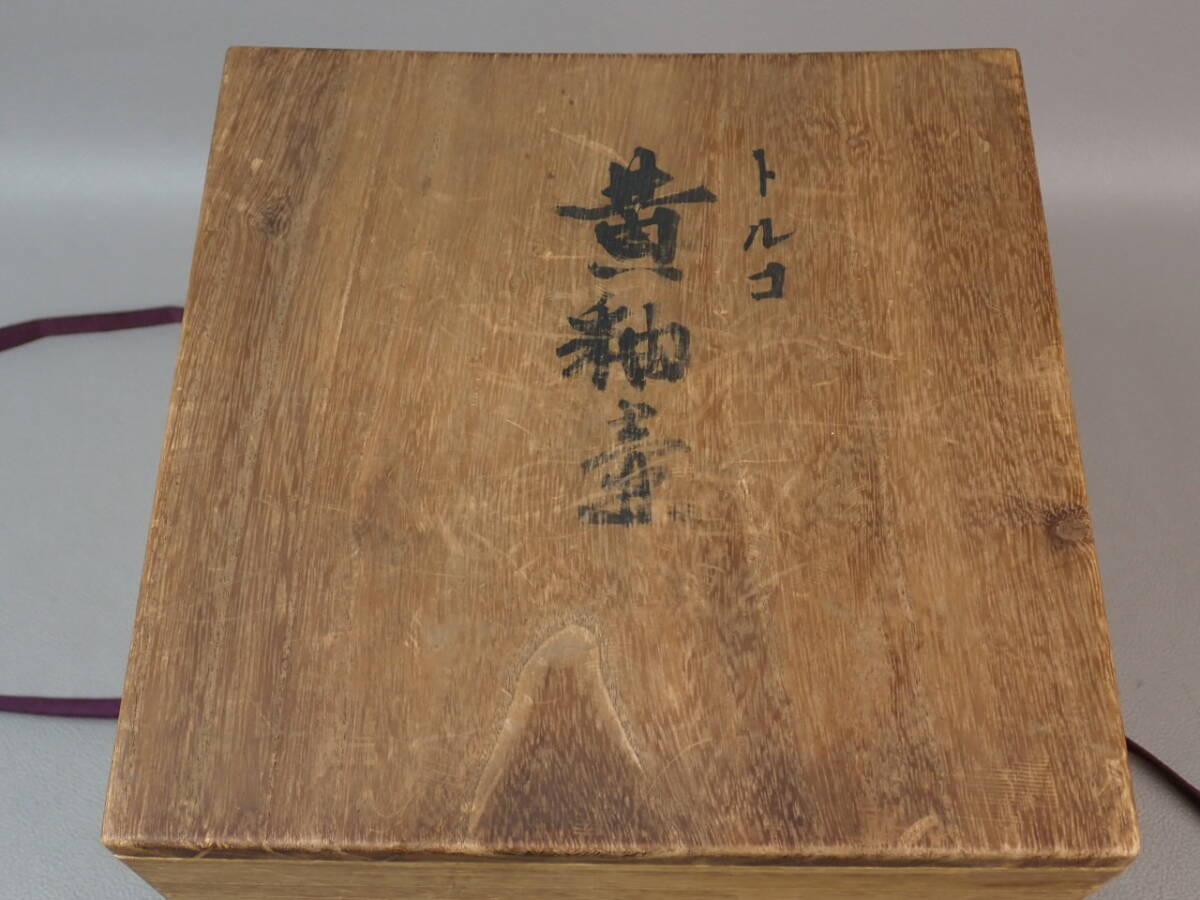 トルコ
黄釉壷